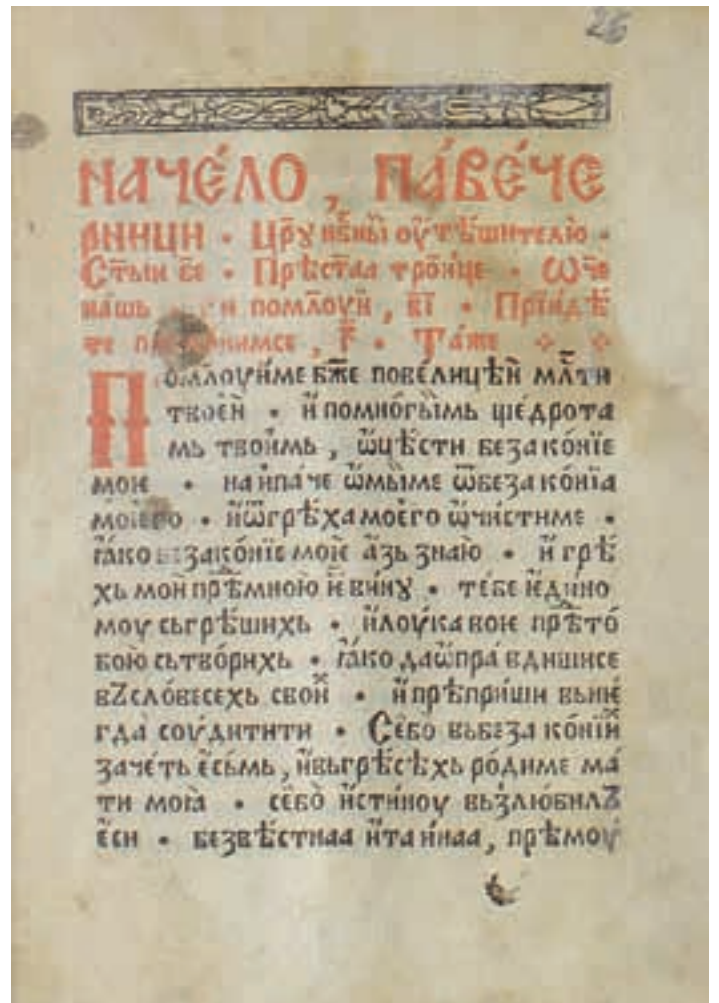 26
НАЧЕ́ЛО , ПА́ВЕ́ЧЕ
РНИЦИ • Цр҃ꙋ нб҃ныи оу҆тѣ́шителю •
Ст҃ыи бе҃ • Прѣст҃аа трⷪ҇ице • Ѿч҃е
нашь • ги҃ помл҃оуи , в҃і • Прїидѣ́
те нимсе , г҃ • Та́же
Помл҃оуи́ме бж҃е повели́цѣи мл҃ти
твоеи • и҆ помно́гыимь щедрота
мь твои́мь , ѡ҆цѣ́сти безако́нїе
мою • наи́па́че ѡ҆мы́име ѿбезако́нїа
моѥго • и҆ѿгрѣ́хамоего ѡ҆чи́стиме •
ꙗ҆ко безако́нїе моѥ а҆зь знаю • и҆ грѣ́
хь мои прѣ́мною ѥ҆ вину • те́бе ѥ҆ди́но
моу сьгрѣ́шихь • и҆лоука́вою прѣ́то́
бою сьтво́рихь • ꙗ҆ко даѡ҆пра́вдишисе
вꙁсло́весехь свои̾ • и҆ прѣ́приши вьнѥ́
гда̀ соу́дитити • Се́бо̀ вьбеза ко́нїи̾
заче́ть ѥ҆сьмь , и҆вьгрѣ́сѣхь ро́диме ма́
ти моꙗ̀ • се́бо̀ и҆́стиноу вьзлю́билъ
ѥ҆си • безвѣ́стнаа и҆та́инаа , прѣ́моу